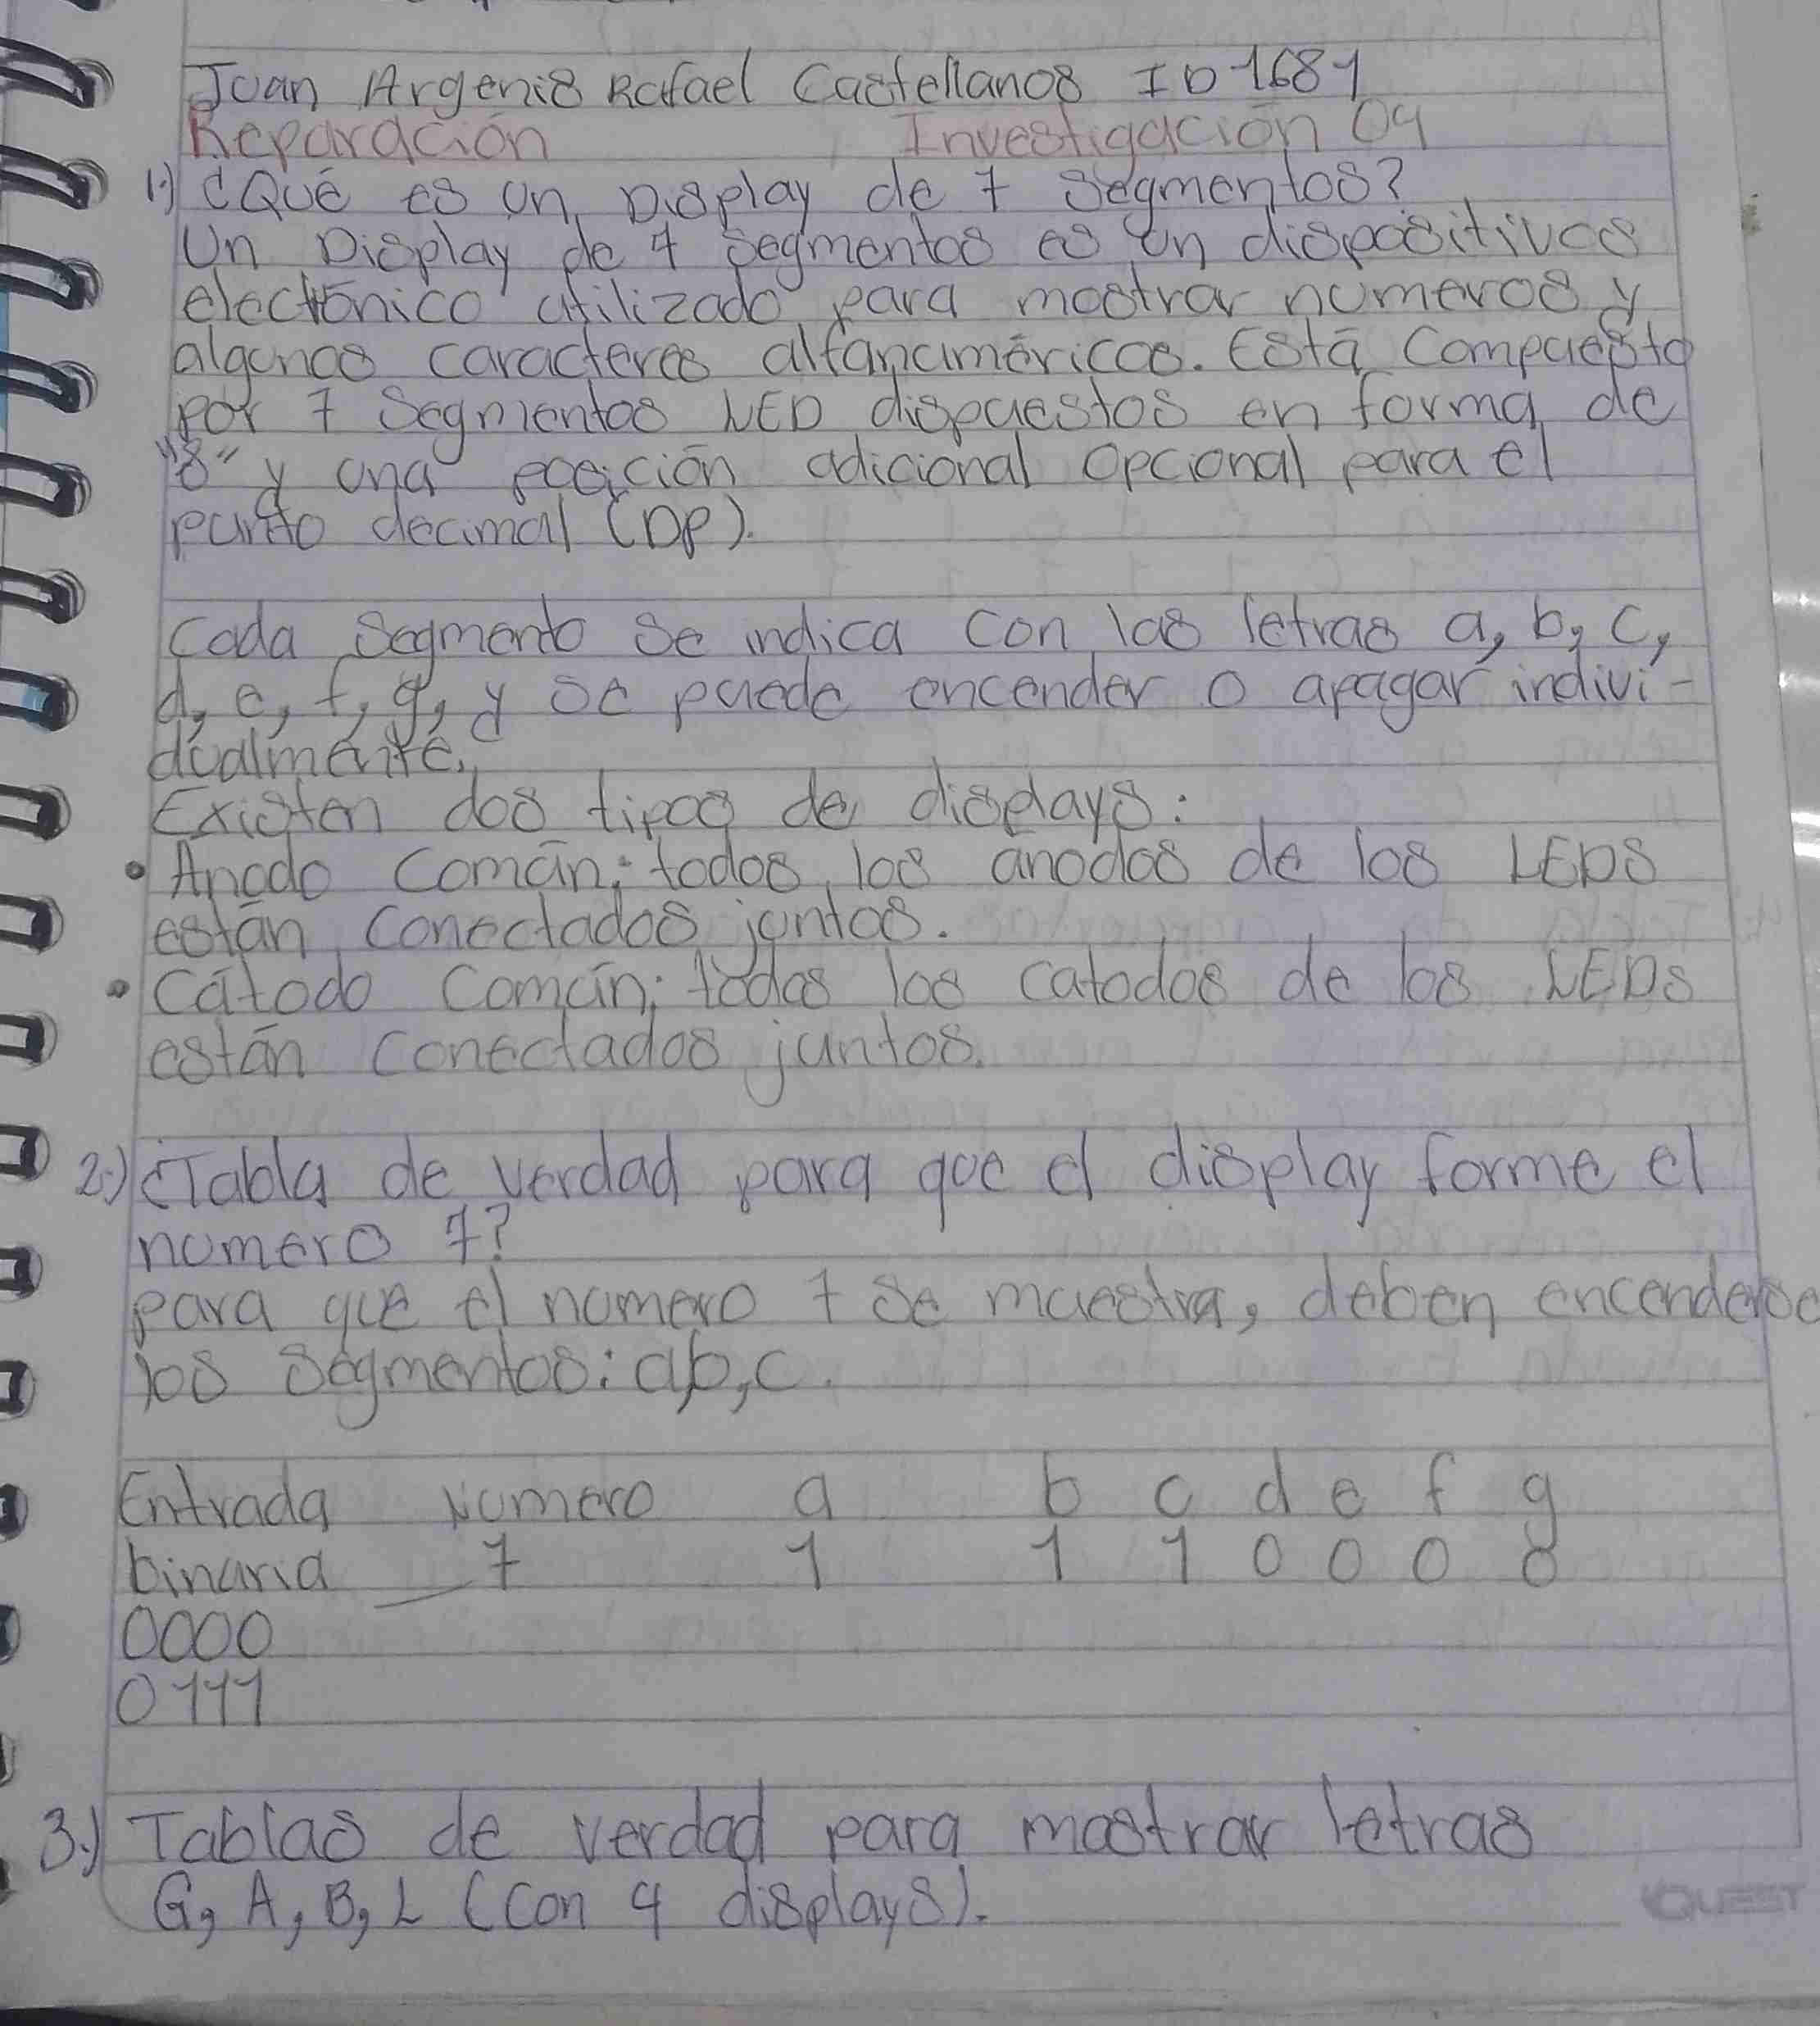 Juan Argenis Rafael Castellanos ID 1681
Reparación Investigación 04
1.) ¿Qué es un Display de 7 Segmentos?
Un Display de 7 Segmentos es un dispositivos
electrónico utilizado para mostrar numeros y
algunos caracteres alfanuméricos. Está Compuesto
por 7 Segmentos LED dispuestos en forma de
"8" y una posición adicional opcional para el
punto decimal (DP).
Cada Segmento Se indica Con las letras a, b, c,
d, e, f, g, y se puede encender o apagar indivi-
dualmente.
Existen dos tipos de displays:
• Anodo Común: todos los anodos de los LEDS
están Conectados juntos.
• Cátodo Común: todos los catodos de los LEDs
están Conectados juntos.
2.) ¿Tabla de verdad para que el display forme el
numero 7?
para que el numero 7 Se muestra, deben encenderse
los Segmentos: a,b,c.
Entrada Numero a b c d e f g
binaria 7 1 1 1 0 0 0 0
0000
0111
3.) Tablas de verdad para mostrar letras
G, A, B, L (Con 4 displays).
QUEST